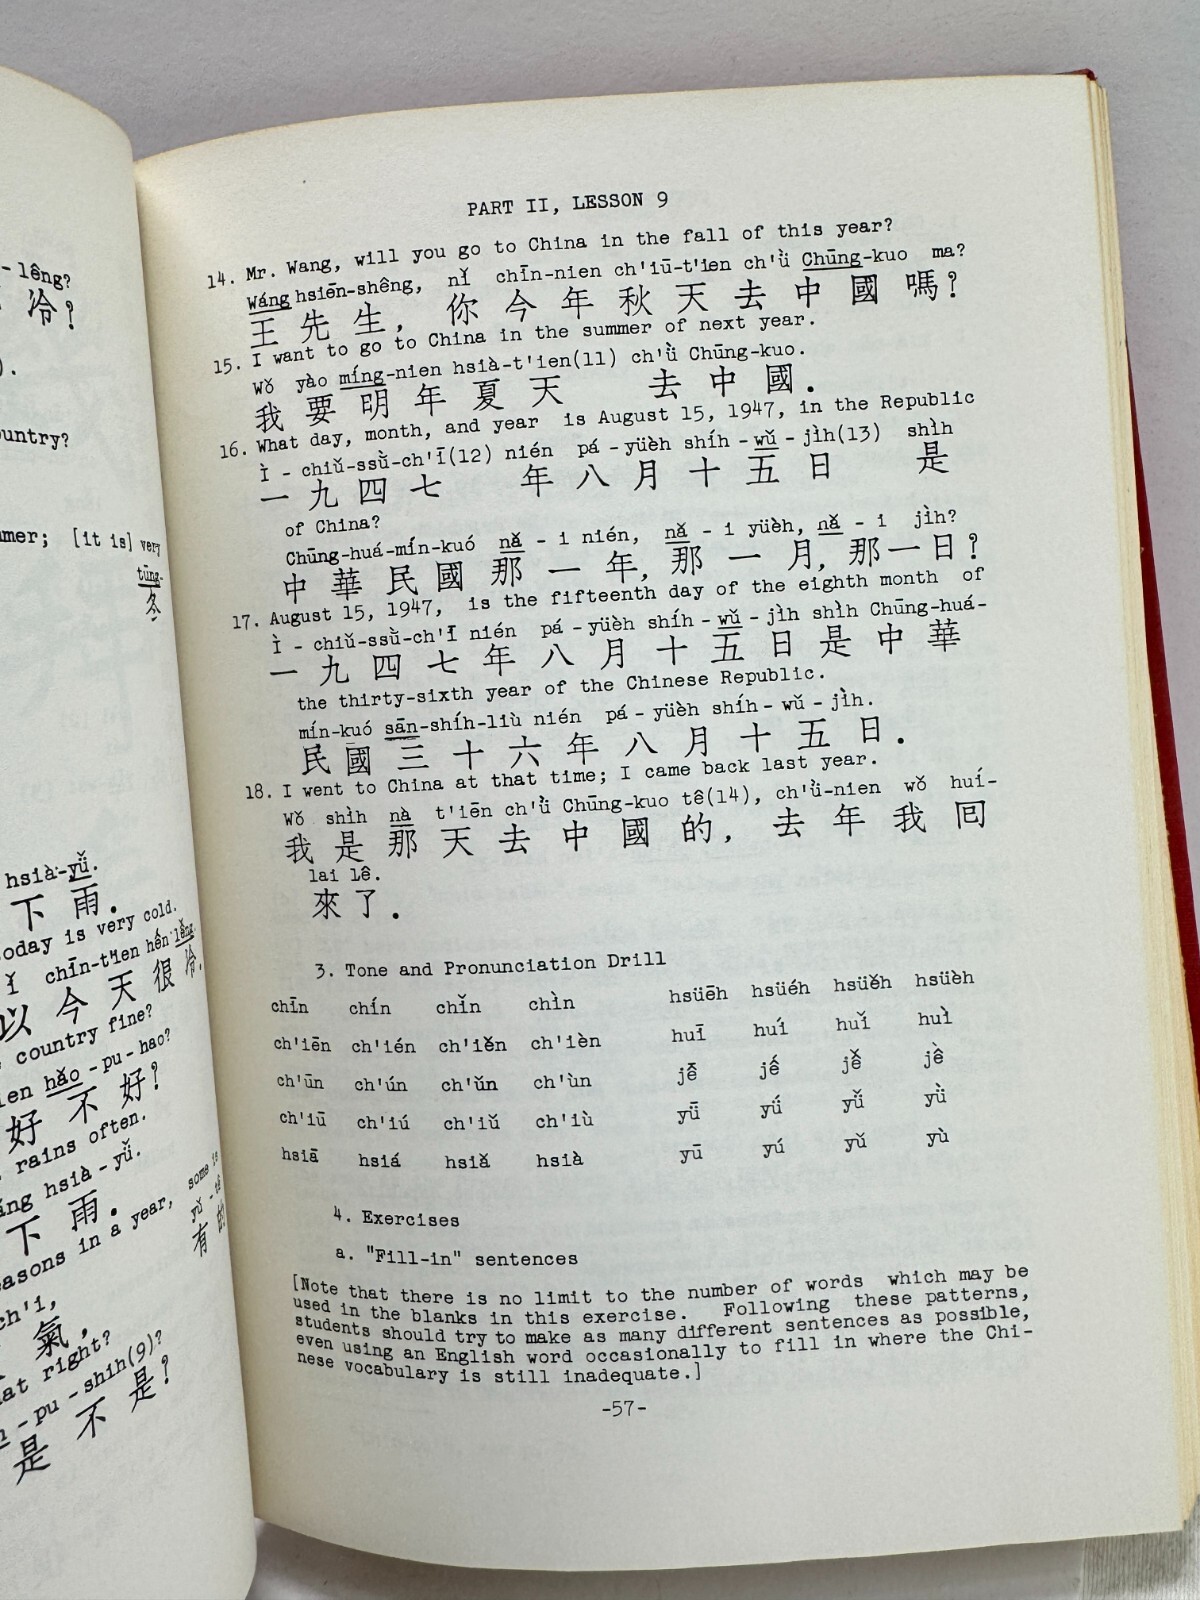 - lêng?
冷?
).
ountry?
mmer; [it is] very
tūng-
冬
hsià-yǔ̈.
下雨.
oday is very cold.
ǐ chīn-t'ien hěn lěng.
以今天很冷.
country fine?
ien hǎo-pu-hao?
好不好?
rains often.
áng hsià-yǔ̈.
下雨.
easons in a year, some is
yǔ-tê
有的
ch'ì,
氣,
hat right?
-pu-shih(9)?
是不是?
PART II, LESSON 9
14. Mr. Wang, will you go to China in the fall of this year?
Wáng hsiēn-shêng, nǐ chīn-nien ch'iū-t'ien ch'ǜ Chūng-kuo ma?
王先生, 你今年秋天去中國嗎?
15. I want to go to China in the summer of next year.
Wǒ yào míng-nien hsià-t'ien(11) ch'ǜ Chūng-kuo.
我要明年夏天 去中國.
16. What day, month, and year is August 15, 1947, in the Republic
Ì - chiǔ-ssù-ch'ī(12) nién pá-yüèh shíh-wǔ-jìh(13) shìh
一九四七 年八月十五日 是
of China?
Chūng-huá-mín-kuó nǎ - i nién, nǎ - i yüèh, nǎ - i jìh?
中華民國那一年, 那一月, 那一日?
17. August 15, 1947, is the fifteenth day of the eighth month of
Ì - chiǔ-ssù-ch'ī nién pá-yüèh shíh-wǔ-jìh shìh Chūng-huá-
一九四七年八月十五日是中華
the thirty-sixth year of the Chinese Republic.
mín-kuó sān-shíh-liù nién pá-yüèh shíh-wǔ-jìh.
民國三十六年八月十五日.
18. I went to China at that time; I came back last year.
Wǒ shìh nà t'iēn ch'ǜ Chūng-kuo tê(14), ch'ǜ-nien wǒ huí-
我是那天去中國的, 去年我囘
lai lê.
來了.
3. Tone and Pronunciation Drill
chīn chín chǐn chìn hsüēh hsüéh hsüěh hsüèh
ch'iēn ch'ién ch'iěn ch'ièn huī huí huǐ huì
ch'ūn ch'ún ch'ǔn ch'ùn jê̄ jế jê̌ jề
ch'iū ch'iú ch'iǔ ch'iù yǖ yǘ yǚ yǜ
hsiā hsiá hsiǎ hsià yū yú yǔ yù
4. Exercises
a. "Fill-in" sentences
[Note that there is no limit to the number of words which may be
used in the blanks in this exercise. Following these patterns,
students should try to make as many different sentences as possible,
even using an English word occasionally to fill in where the Chi-
nese vocabulary is still inadequate.]
-57-